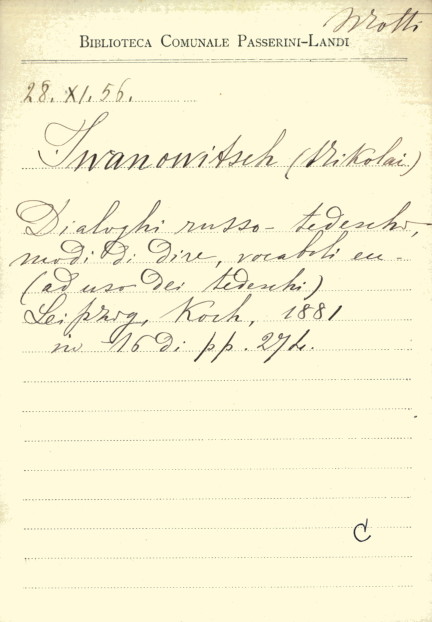 Mrotti
BIBLIOTECA COMUNALE PASSERINI-LANDI
28. XI. 56.
Iwanowitsch (Nikolai)
Dialoghi russo-tedeschi,
modi di dire, vocaboli ec.
(ad uso dei tedeschi)
Leipzig, Koch, 1881
in 16 di pp. 274.
C